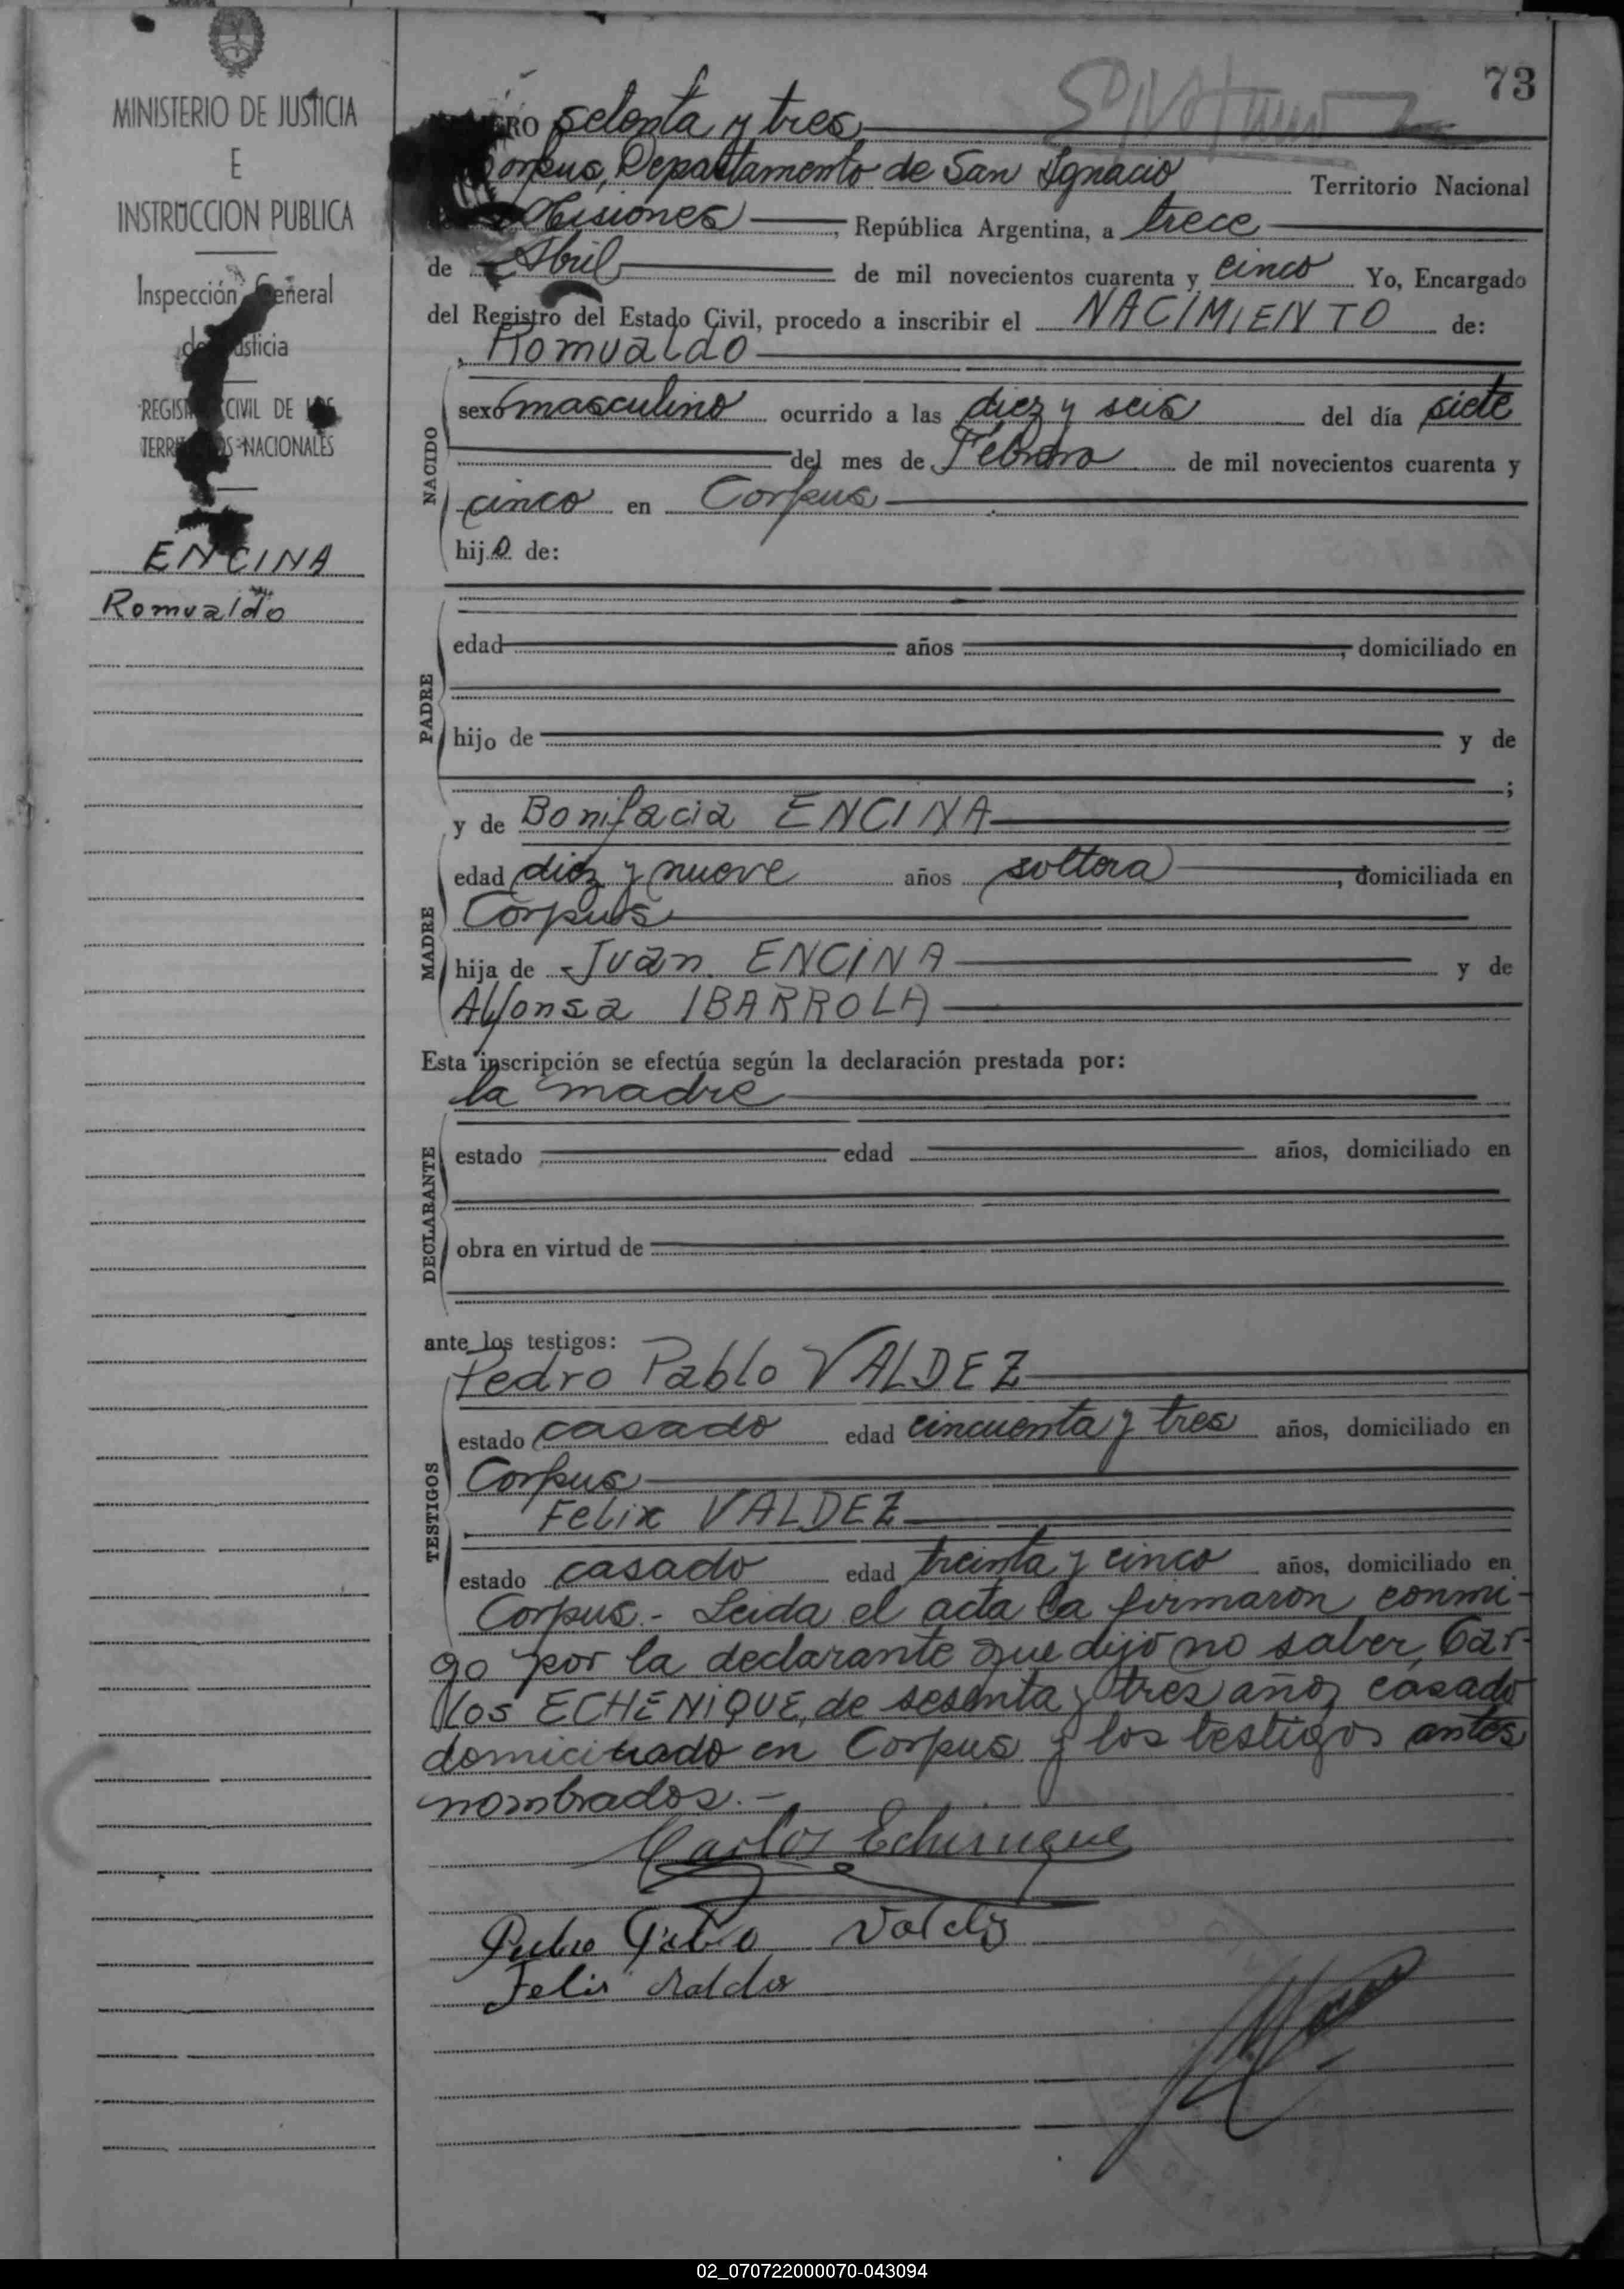 MINISTERIO DE JUSTICIA
E
INSTRUCCION PUBLICA
Inspección General
de Justicia
REGISTRO CIVIL DE LOS
TERRITORIOS NACIONALES
ENCINA
Romualdo
73
NUMERO setenta y tres
Corpus, Departamento de San Ignacio Territorio Nacional
Misiones, República Argentina, a trece
de Abril de mil novecientos cuarenta y cinco Yo, Encargado
del Registro del Estado Civil, procedo a inscribir el NACIMIENTO de:
Romualdo
NACIDO
sexo masculino ocurrido a las diez y seis del día siete
del mes de Febrero de mil novecientos cuarenta y
cinco en Corpus
hijo de:
PADRE
edad años , domiciliado en
hijo de y de
;
MADRE
y de Bonifacia ENCINA
edad diez y nueve años soltera, domiciliada en
Corpus
hija de Juan ENCINA y de
Alfonsa IBARROLA
Esta inscripción se efectúa según la declaración prestada por:
la madre
DECLARANTE
estado edad años, domiciliado en
obra en virtud de
ante los testigos:
TESTIGOS
Pedro Pablo VALDEZ
estado casado edad cincuenta y tres años, domiciliado en
Corpus
Felix VALDEZ
estado casado edad treinta y cinco años, domiciliado en
Corpus.- Leida el acta la firmaron conmi-
go por la declarante que dijo no saber, Car-
los ECHENIQUE, de sesenta y tres años casado
domiciliado en Corpus y los testigos antes
nombrados.-
Carlos Echenique
Pedro Pablo Valdez
Felix Valdez
02_070722000070-043094